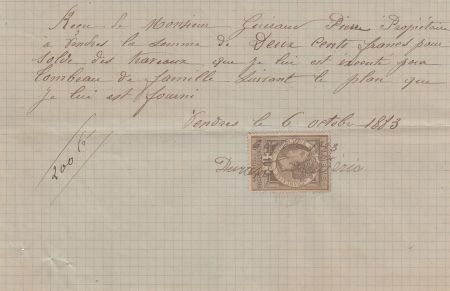 Reçu de Monsieur Pierre Propriétaire
à Vendres la somme de Deux cents francs pour
solde des traveaux que je lui est exécuté pour
tombeau de famille suivant le plan que
je lui est fourni
Vendres le 6 octobre 1883
200 f